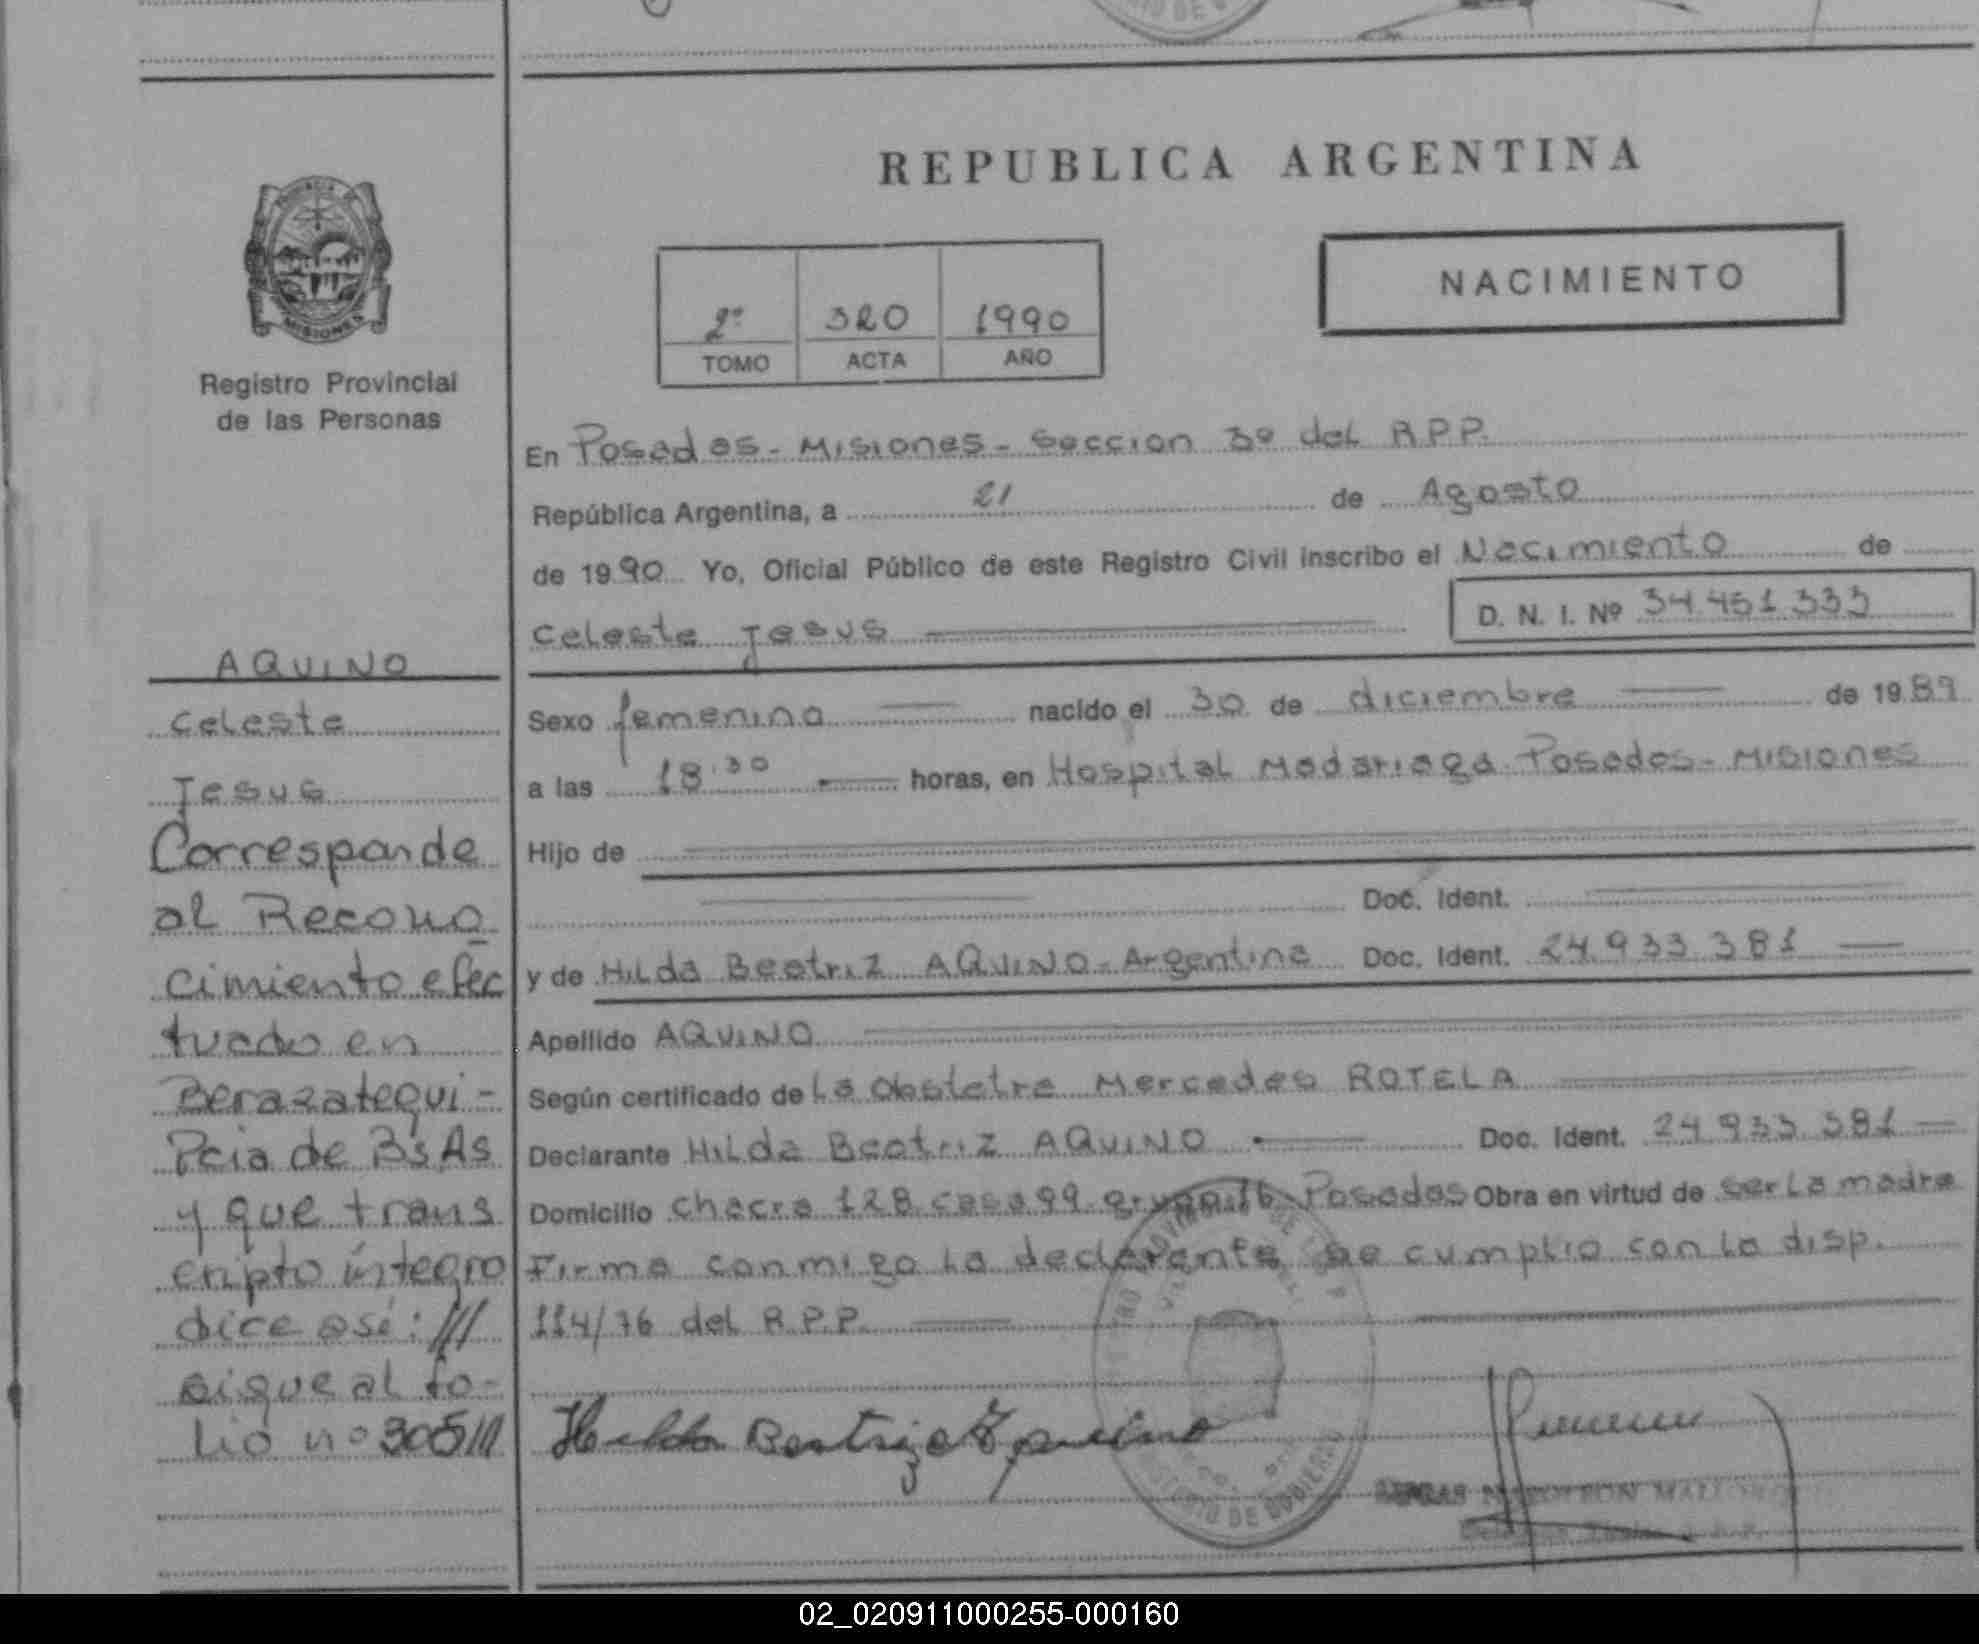 REPUBLICA ARGENTINA
NACIMIENTO
2º 320 1990
TOMO ACTA AÑO
MISIONES
Registro Provincial
de las Personas
AQUINO
Celeste
Jesus
Corresponde
al Recono
cimiento efec
tuado en
Berazategui -
Pcia de Bs As
y que trans
cripto íntegro
dice así: ///
sigue al fo-
lio nº 305///
En Posadas - Misiones - Seccion 3º del R.P.P.
República Argentina, a 21 de Agosto
de 1990 Yo, Oficial Público de este Registro Civil inscribo el Nacimiento de
Celeste Jesus D. N. I. Nº 34.451.333
Sexo femenino nacido el 30 de diciembre de 1989
a las 18.30 horas, en Hospital Madariaga Posadas - Misiones
Hijo de
Doc. Ident.
y de Hilda Beatriz AQUINO - Argentina Doc. Ident. 24.933.381
Apellido AQUINO
Según certificado de La Obstetra Mercedes ROTELA
Declarante Hilda Beatriz AQUINO Doc. Ident. 24.933.381
Domicilio Chacra 128 casa 99 grupo 16 Posadas Obra en virtud de ser la madre
Firma conmigo la declarante se cumplio con la disp.
114/76 del R.P.P.
Hilda Beatriz Aquino
02_020911000255-000160